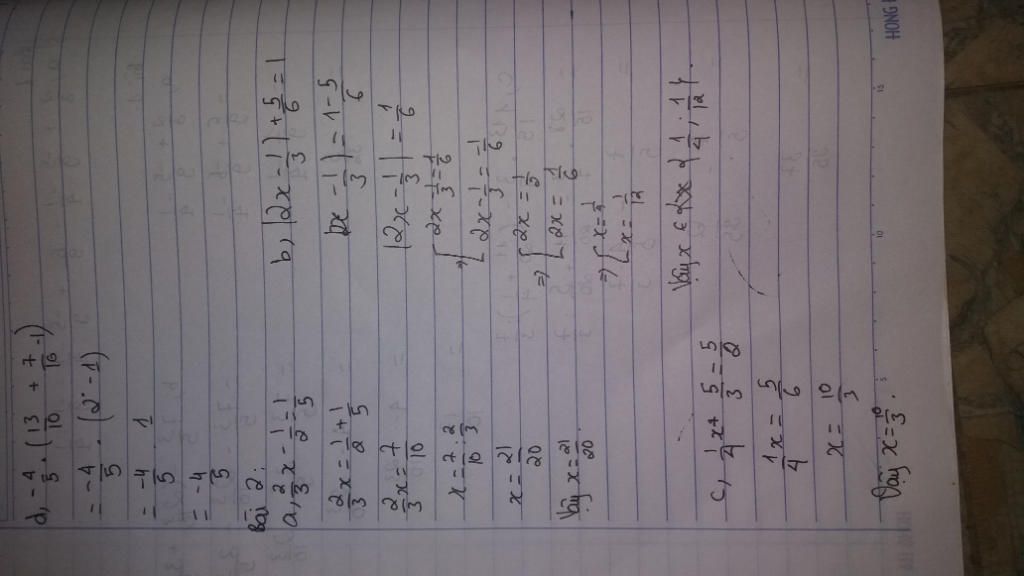 d, -4/5 . (13/10 + 7/10 - 1)
= -4/5 . (2 - 1)
= -4/5 . 1
= -4/5
Bài 2:
a, 2/3 x - 1/2 = 1/5
2/3 x = 1/2 + 1/5
2/3 x = 7/10
x = 7/10 : 2/3
x = 21/20
Vậy x = 21/20.
b, |2x - 1/3| + 5/6 = 1
|2x - 1/3| = 1 - 5/6
|2x - 1/3| = 1/6
=> [ 2x - 1/3 = 1/6
2x - 1/3 = -1/6
=> [ 2x = 1/2
2x = 1/6
=> [ x = 1/4
x = 1/12
Vậy x ∈ { 1/4 ; 1/12 }.
c, 1/4 x + 5/3 = 5/2
1/4 x = 5/6
x = 10/3
Vậy x = 10/3.
HONG